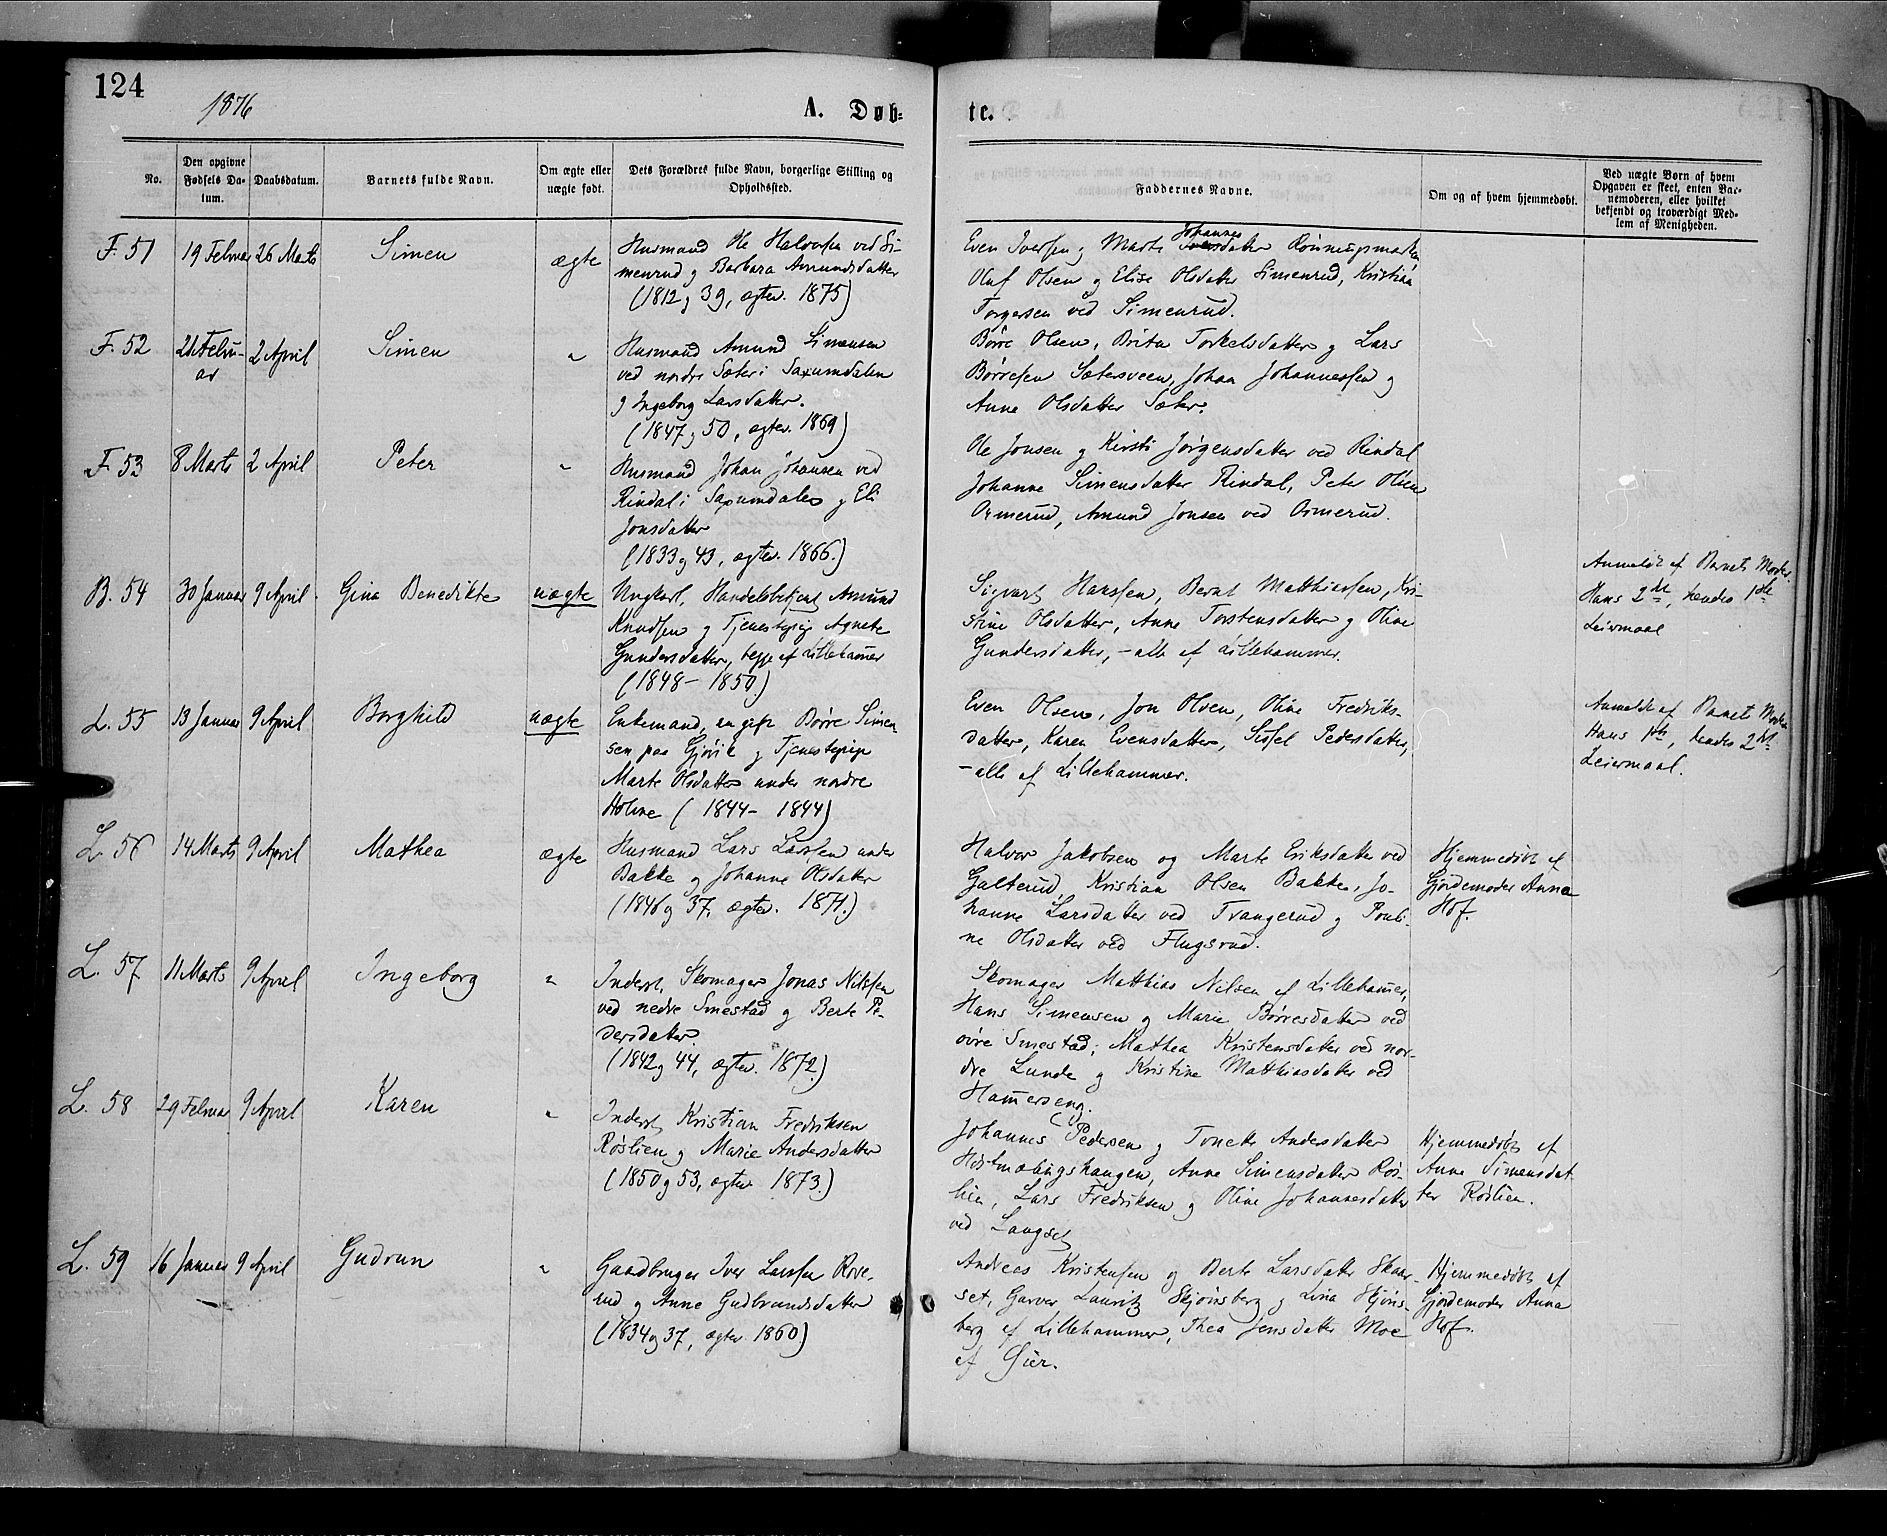 124
1876
A. Døb=
te.
No.
Den opgivne Fødsels Da-tum.
Daabsdatum.
Barnets fulde Navn.
Om ægte eller uægte født.
Dets Forældres fulde Navn, borgerlige Stilling og Opholdssted.
Faddernes Navne.
Om og af hvem hjemmedøbt.
Ved uægte Børn af hvem
Opgaven er skeet, enten Bar-
nemoderen, eller hvilket
bekjendt og troværdigt Med-
lem af Menigheden.
F. 51
19 Februar
26 Marts
Simen
ægte
Husmand Ole Halvorsen ved Si-
menrud og Barbara Amundsdatter
(1812 og 39, ægtev. 1875)
Even Iversen og Marte Johannesdatter
Oluf Olsen og Elise Olsdatter Simenrud, Kristian
Torgersen ved Simenrud.
F. 52
21 Febru-
ar
2 April
Simen
"
Husmand Amund Simensen
ved nordre Sæter i Saxumdalen
og Ingeborg Larsdatter.
(1847 og 50, ægtev. 1869)
Børre Olsen, Brita Torkelsdatter og Lars
Børresen Sætersveen, Johan Johannessen og
Anne Olsdatter Sæter.
F. 53
8 Marts
2 April
Peter
"
Husmand Johan Johansen ved
Rindal i Saxumdalen og Eli
Jonsdatter
(1833 og 43, ægtev. 1866.)
Ole Jonsen og Kirsti Jørgensdatter ved Rindal
Johanne Simensdatter Rindal, Peter Olsen
Ormerud, Amund Jonsen ved Ormerud.
B. 54
30 Januar
9 April
Gina Benedikte
uægte
Ungkarl, Handelsbetjent Amund
Knudsen og Tjenestepige Agnete
Gundersdatter, begge af Lillehammer
(1848 - 1850)
Sigvart Hanssen, Bernt Matthiassen, Kri-
stine Olsdatter, Anne Torstensdatter og Oline
Gundersdatter, - alle af Lillehammer.
Anmeldt af Barnets Moder.
Hans 2det, hendes 1ste
Leiermaal
L. 55
13 Januar
9 April
Borghild
uægte
Enkemand, Børre Simen-
sen paa Gjøvik og Tjenestepige
Marte Olsdatter under nordre
Holme (1844 - 1844)
Even Olsen, Jon Olsen, Oline Fredriks-
datter, Karen Evensdatter, Sissel Pedersdatter,
- alle af Lillehammer.
Anmeldt af Barnets Moder
Hans 1ste, hendes 2det
Leiermaal.
L. 56
14 Marts
9 April
Mathea
ægte
Husmand Lars Larssen under
Bakke og Johanne Olsdatter
(1846 og 37, ægtev. 1871.)
Halvor Jakobsen og Marte Eriksdatter ved
Galterud, Kristian Olsen Bakke, Jo-
hanne Larsdatter ved Trangerud og Pouli-
ne Olsdatter ved Flugsrud.
Hjemmedøbt af
Gjordemoder Anna
Hof.
L. 57
11 Marts
9 April
Ingeborg
"
Inderst, Skomager Jonas Nilssen
ved nedre Smestad og Berte Pe-
dersdatter
(1842 og 44, ægtev. 1872.)
Skomager Matthias Nilsen af Lillehamer,
Hans Simensen og Marie Børresdatter ved
øvre Smestad, Mathea Kristensdatter ved nor-
dre Lunde og Kristine Matthiasdatter ved
Hamerseng.
L. 58
29 Februar
9 April
Karen
"
Inderst Kristian Fredriksen
Røslien og Marie Andersdatter
(1850 og 53, ægtev. 1873.)
Johannes Pedersen og Tonette Andersdatter
Anne Simensdatter Røs-
lien, Lars Fredriksen og Oline Johannesdatter
ved Langset
Hjemmedøbt af
Anne Simensdat-
ter Røslien.
L. 59
16 Januar
9 April
Gudrun
"
Gaardbruger Iver Larssen Rove-
rud og Anne Gudbrandsdatter
(1834 og 37, ægtev. 1860)
Andreas Kristensen og Berte Larsdatter Skaar-
set, Garver Lauritz Skjønsberg og Lina Skjøns-
berg af Lillehammer, Thea Jensdatter Moe
af Øier.
Hjemmedøbt af
Gjordemoder Anna
Hof.